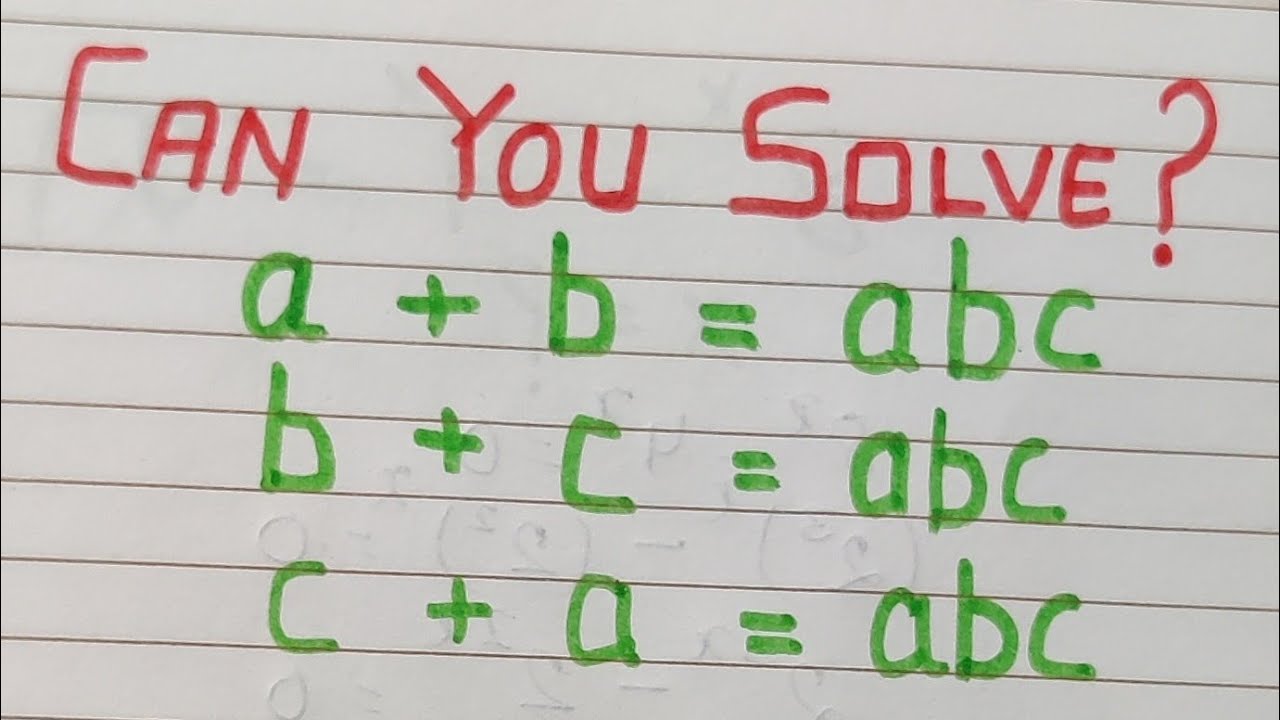 CAN YOU SOLVE?
a + b = abc
b + c = abc
c + a = abc